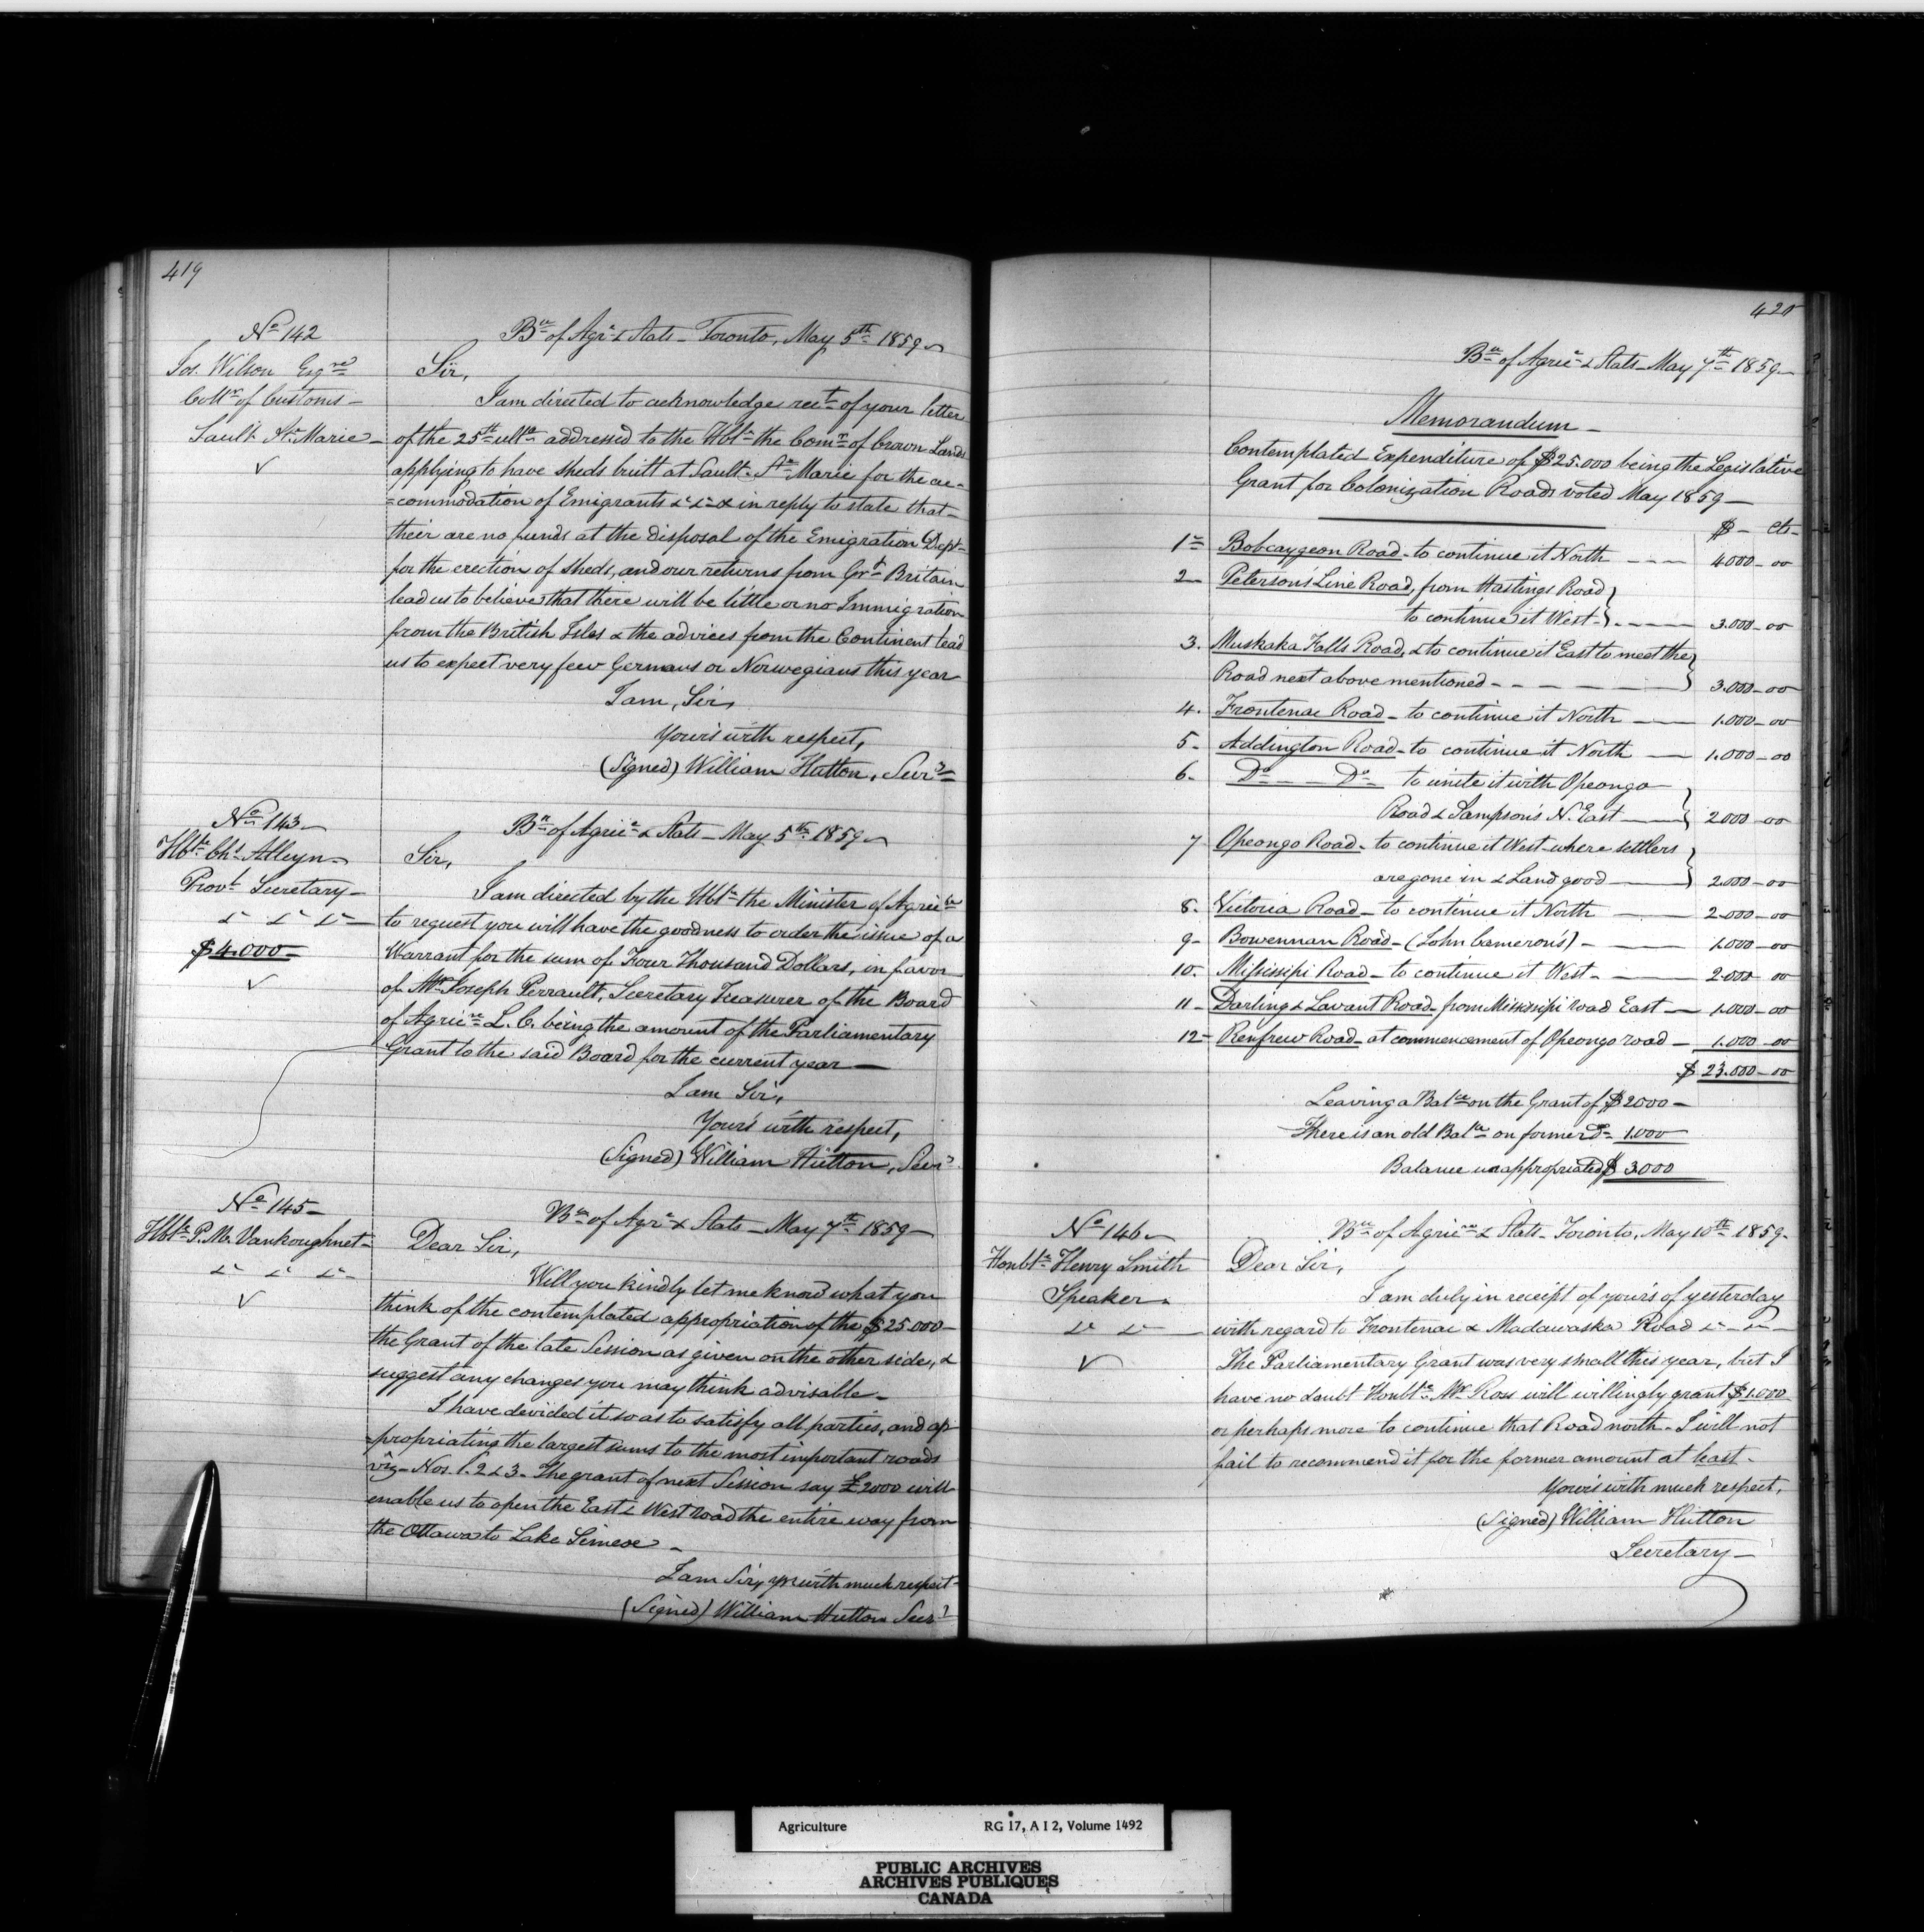 419
No 142
Jos. Wilson Esqre
Collr of Customs -
Sault Ste Marie -
Bu of Agr & Stats - Toronto, May 5th 1859
Sir,
I am directed to acknowledge rect of your letter
of the 25th ulto addressed to the Hble the Comr of Crown Lands
applying to have sheds built at Sault Ste Marie for the ac-
=commodation of Emigrants &c &c & in reply to state that
their are no funds at the disposal of the Emigration Dept
for the erection of sheds, and our returns from Grt Britain
lead us to believe that there will be little or no Immigration
from the British Isles & the advices from the Continent lead
us to expect very few Germans or Norwegians this year
I am, Sir,
Yours with respect,
(Signed) William Hutton, Secry
No 143
Hble Chs Alleyn
Provl Secretary -
&c &c &c -
$4.000 -
Bu of Agric & Stats - May 5th 1859
Sir,
I am directed by the Hble the Minister of Agricre
to request you will have the goodness to order the issue of a
Warrant for the sum of Four Thousand Dollars, in favor
of Mr Joseph Perrault, Secretary Treasurer of the Board
of Agricre L. C. being the amount of the Parliamentary
Grant to the said Board for the current year -
I am Sir,
Yours with respect,
(Signed) William Hutton, Secy
No 145 -
Hble P. M. Vankoughnet -
&c &c &c -
Bu of Agr & Stats - May 7th 1859 -
Dear Sir,
Will you kindly let me know what you
think of the contemplated appropriation of the $25.000 -
the Grant of the late Session as given on the other side, &
suggest any changes you may think advisable -
I have devided it so as to satisfy all parties, and ap-
=propriating the largest sums to the most important roads
viz - Nos. 1. 2 & 3 - The grant of next Session say £2000 will
enable us to open the East & West road the entire way from
the Ottawa to Lake Simcoe -
I am Sir, yrs with much respect -
(Signed) William Hutton Secy
420
Bu of Agric & Stats - May 7th 1859 -
Memorandum -
Contemplated Expenditure of $25.000 being the Legislative
Grant for Colonization Roads voted May 1859 -
$ - cts -
1 - Bobcaygeon Road - to continue it North - - - 4000 - 00
2 - Peterson's Line Road, from Hastings Road
to continue it West - - - - 3.000 - 00
3. Muskaka Falls Road, & to continue it East to meet the
Road next above mentioned - - - - 3.000 - 00
4. Frontenac Road - to continue it North - 1.000 - 00
5 - Addington Road - to continue it North - 1.000 - 00
6 - Do - Do to unite it with Opeongo
Road & Sampson's N. East - 2000 - 00
7 Opeongo Road - to continue it West - where settlers
are gone in & Land good - 2.000 - 00
8. Victoria Road - to continue it North - 2.000 - 00
9 - Bowennan Road - (John Cameron's) - 1.000 - 00
10. Missisipi Road - to continue it West - 2.000 - 00
11 - Darling & Lavant Road - from Missisipi road East - 1.000 - 00
12 - Renfrew Road - at commencement of Opeongo road - 1.000 - 00
$ 23.000 - 00
Leaving a Balce on the Grant of $2000 -
There is an old Balce on former Do 1.000
Balance unappropriated $ 3.000
No 146
Honble Henry Smith
Speaker
&c &c -
Bu of Agricre & Stats - Toronto, May 10th 1859 -
Dear Sir,
I am duly in receipt of yours of yesterday
with regard to Frontenac & Madawaska Road &c - &c -
The Parliamentary Grant was very small this year, but I
have no doubt Honble Mr Ross will willingly grant $1.000
or perhaps more to continue that Road north - I will not
fail to recommend it for the former amount at least -
Yours with much respect,
(Signed) William Hutton
Secretary -
Agriculture RG 17, A I 2, Volume 1492
PUBLIC ARCHIVES
ARCHIVES PUBLIQUES
CANADA